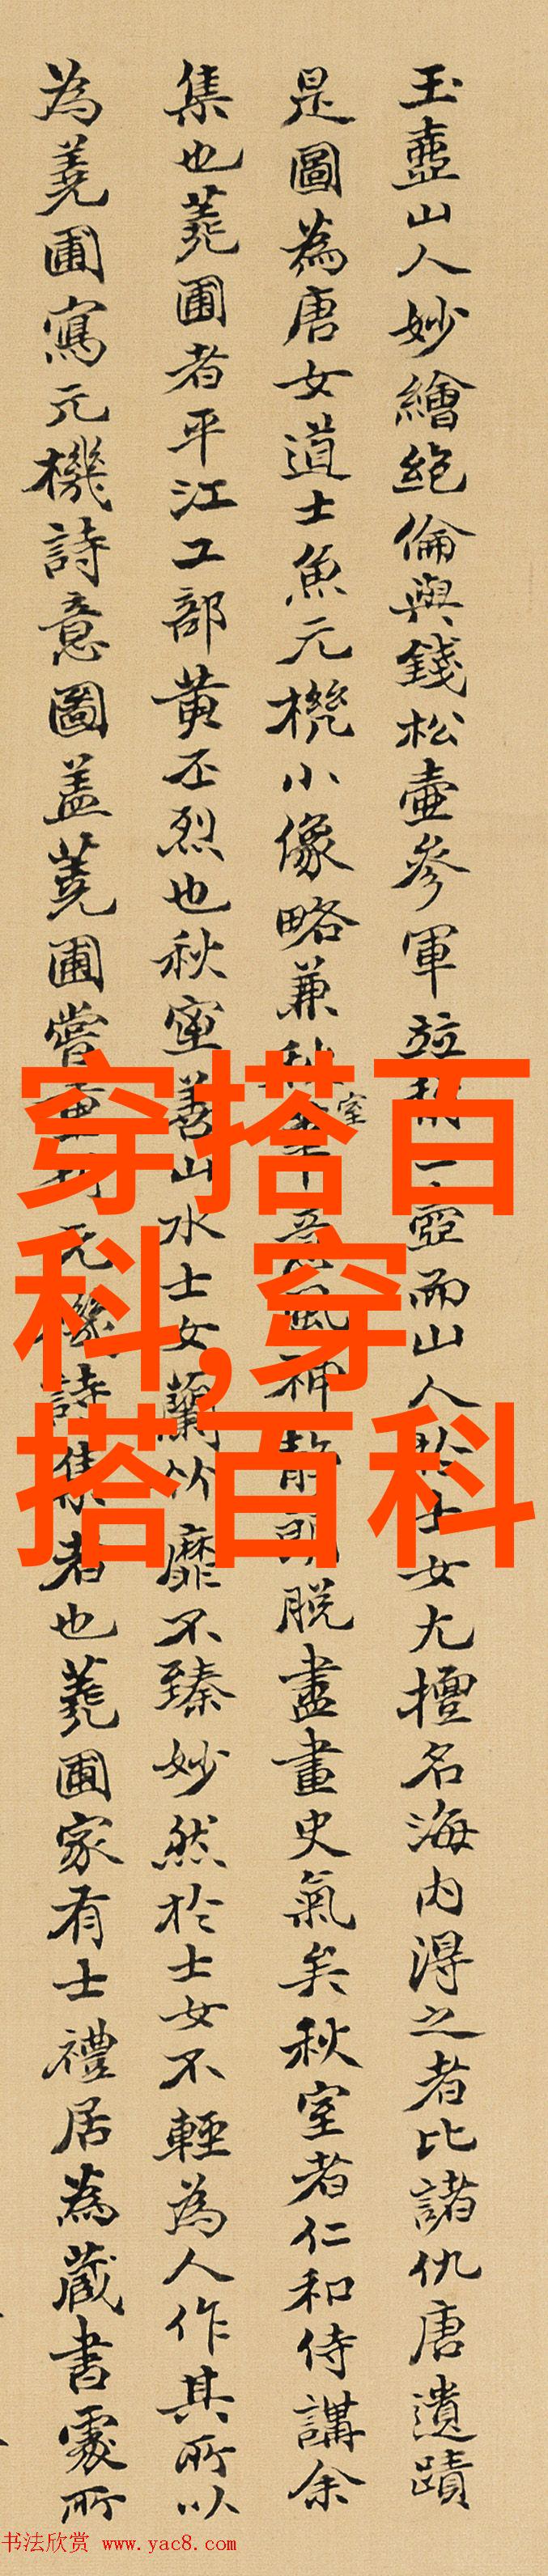 玉壺山人妙繪絶倫與錢松壺參軍竝稱二壺而山人於士女尤擅名海内得之者比諸仇唐遺蹟
是圖為唐女道士魚元機小像略兼秋室意風神静朗脱盡畫史氣矣秋室者仁和侍講余
集也蕘圃者平江工部黄丕烈也秋室善山水士女蘭竹靡不臻妙然於士女不輕為人作其所以
為蕘圃寫元機詩意圖盖蕘圃嘗重刊元機詩集者也蕘圃家有士禮居為蔵書處所
穿搭百
科,穿
搭百科
书法欣赏 www.yac8.com